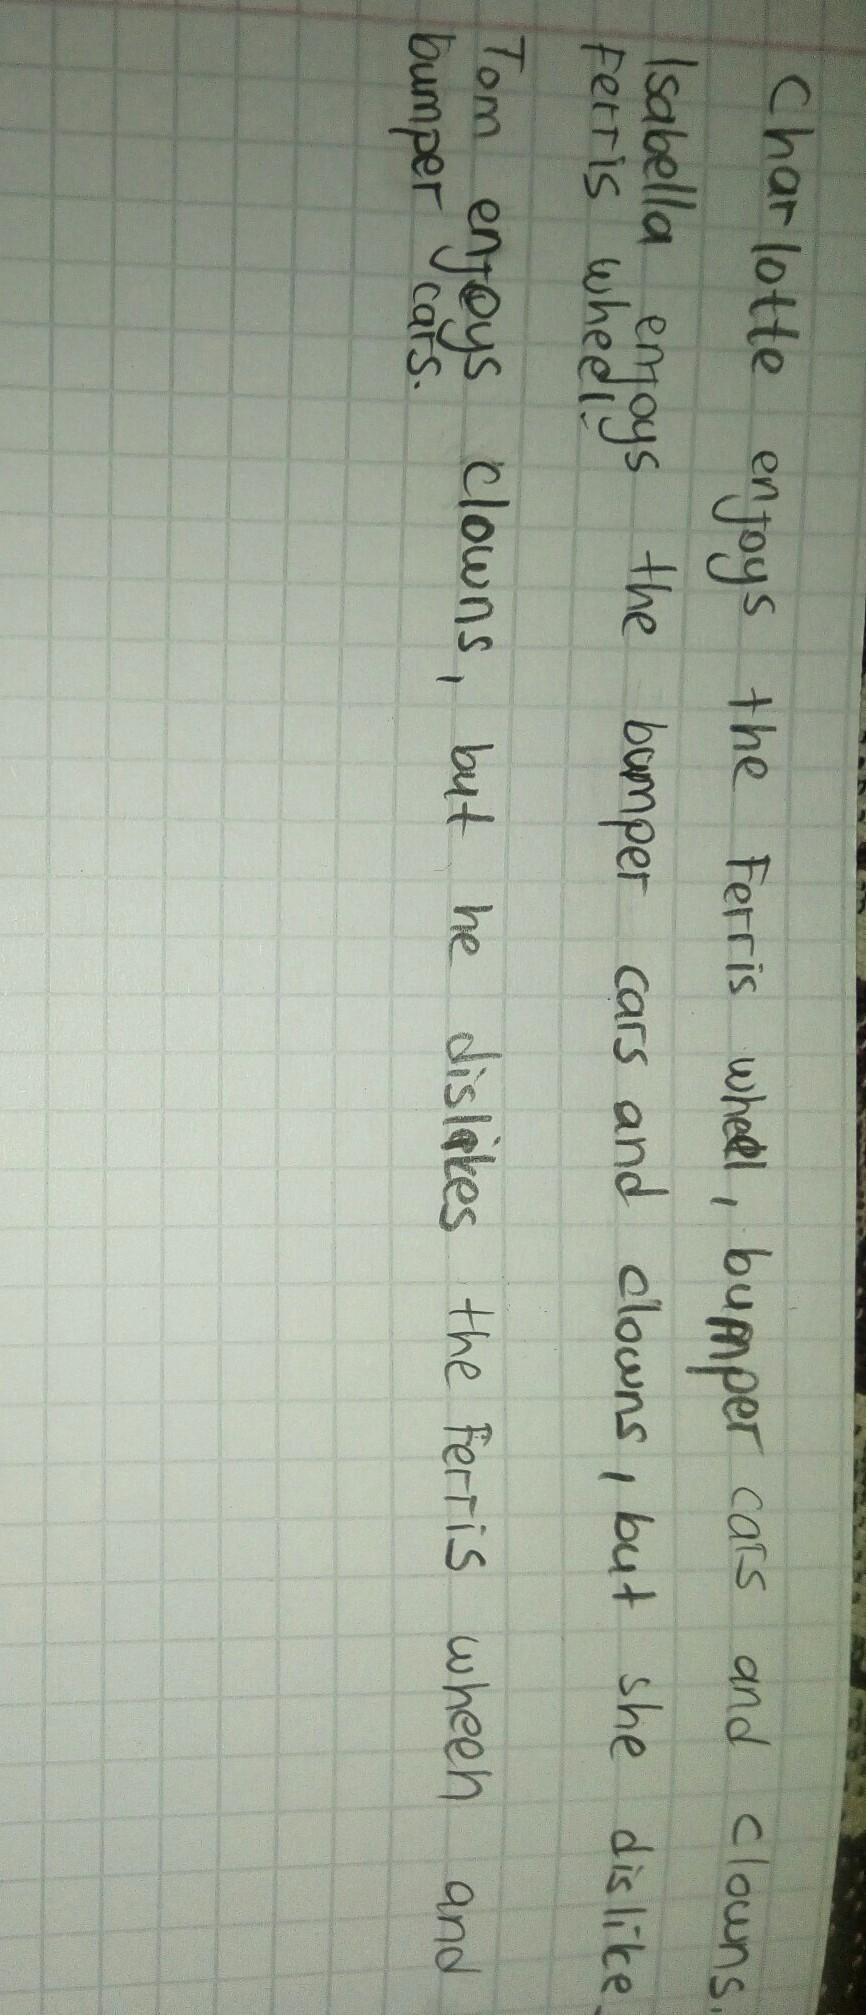 Charlotte enjoys the Ferris wheel, bumper cars and clowns.
Isabella enjoys the bumper cars and clowns, but she dislike
Ferris wheel.
Tom enjoys clowns, but he dislikes the Ferris wheeh and
bumper cars.